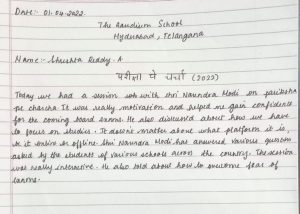 Date:- 01-04-2022
The Aaudium School
Hyderabad, Telangana
Name:- Shrushta Reddy. A
परीक्षा पे चर्चा (2022)
Today we had a session with Shri Narendra Modi on pariksha
pe charcha. It was really motivation and helped me gain confidence
for the coming board exams. He also discussed about how we have
to focus on studies. It doesn't matter about what platform it is,
be it online or offline. Shri Narendra Modi has answered various questions
asked by the students of various schools across the country. The session
was really interactive. He also told about how to overcome fear of
exams.